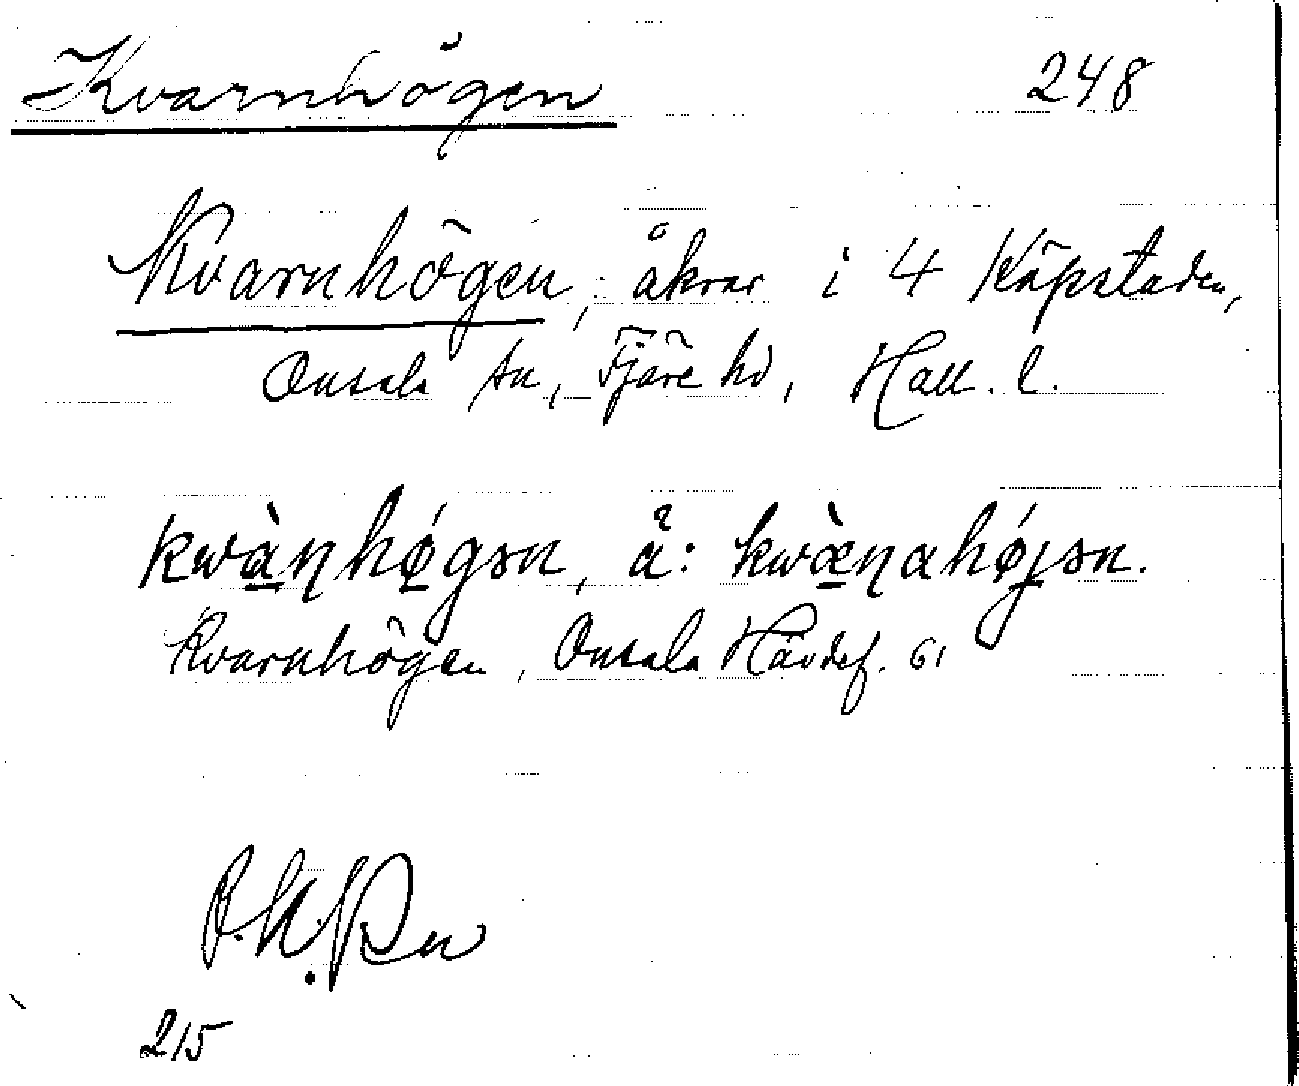 Kvarnhögen 248
Kvarnhögen, åkrar i 4 Käpstaden,
Onsala sn, Fjäre hd, Hall. l.
kwà̱ɳhǿ̱gən, ä: kwæ̱̀ɳahǿɟən.
Kvarnhögen, Onsala Hävdef. 61
215